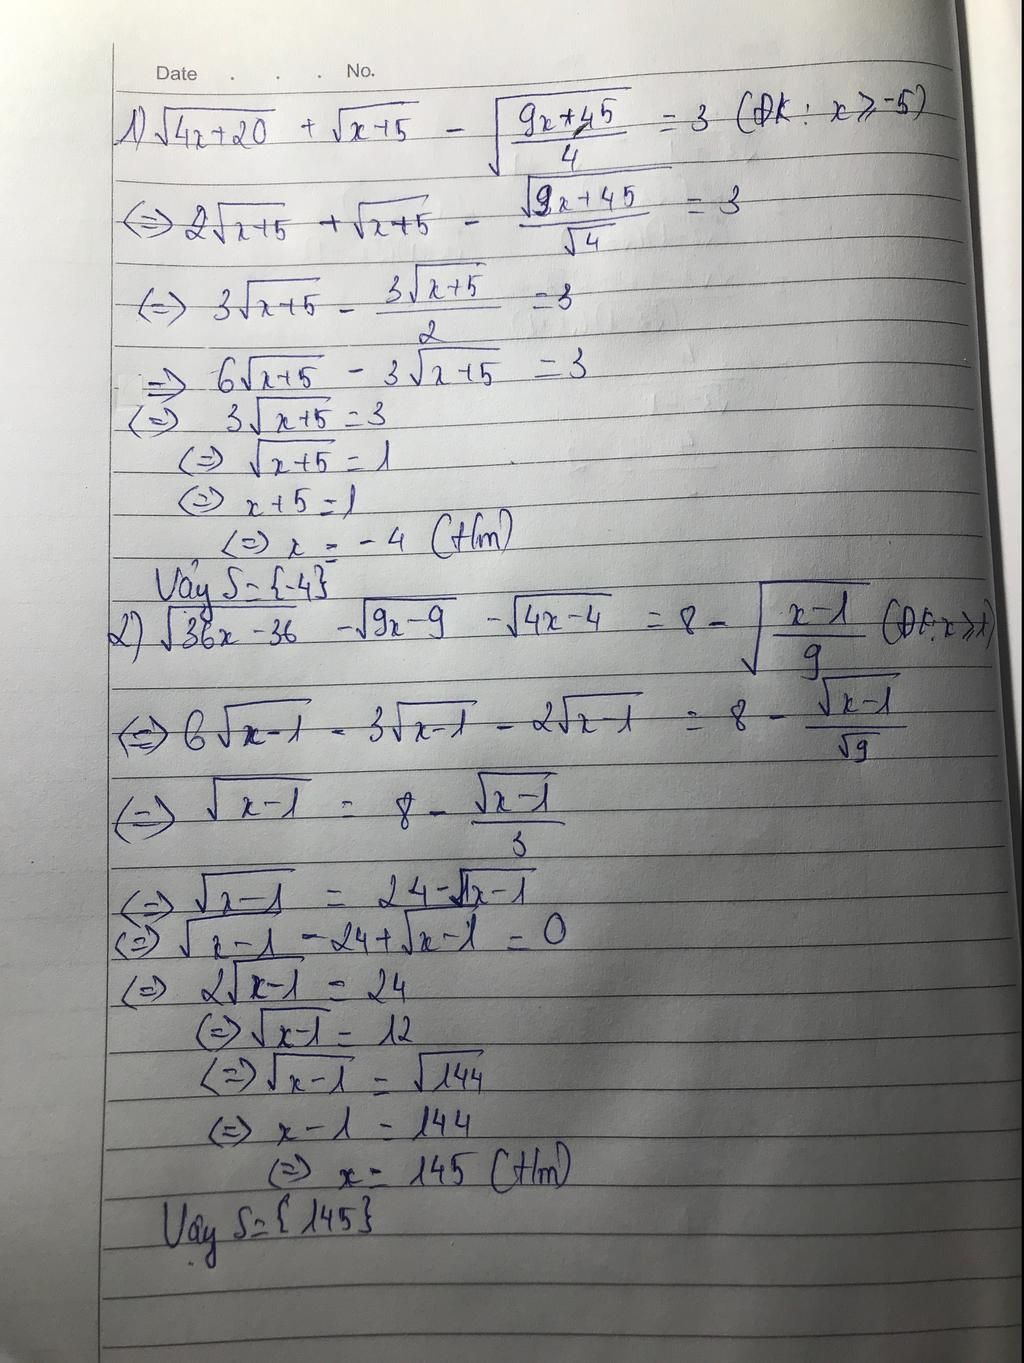 Date . . . No.
1) √(4x+20) + √(x+5) - √((9x+45)/4) = 3 (ĐK: x ≥ -5)
(=) 2√(x+5) + √(x+5) - √(9x+45)/√4 = 3
(=) 3√(x+5) - 3√(x+5)/2 = 3
=) 6√(x+5) - 3√(x+5) = 3
(=) 3√(x+5) = 3
(=) √(x+5) = 1
(=) x+5 = 1
(=) x = -4 (t/m)
Vậy S={-4}
2) √(36x-36) - √(9x-9) - √(4x-4) = 8 - √((x-1)/9) (ĐK: x ≥ 1)
(=) 6√(x-1) - 3√(x-1) - 2√(x-1) = 8 - √(x-1)/√9
(=) √(x-1) = 8 - √(x-1)/3
(=) √(x-1) = 24 - √(x-1)
(=) √(x-1) - 24 + √(x-1) = 0
(=) 2√(x-1) = 24
(=) √(x-1) = 12
(=) √(x-1) = √144
(=) x-1 = 144
(=) x = 145 (t/m)
Vậy S={145}